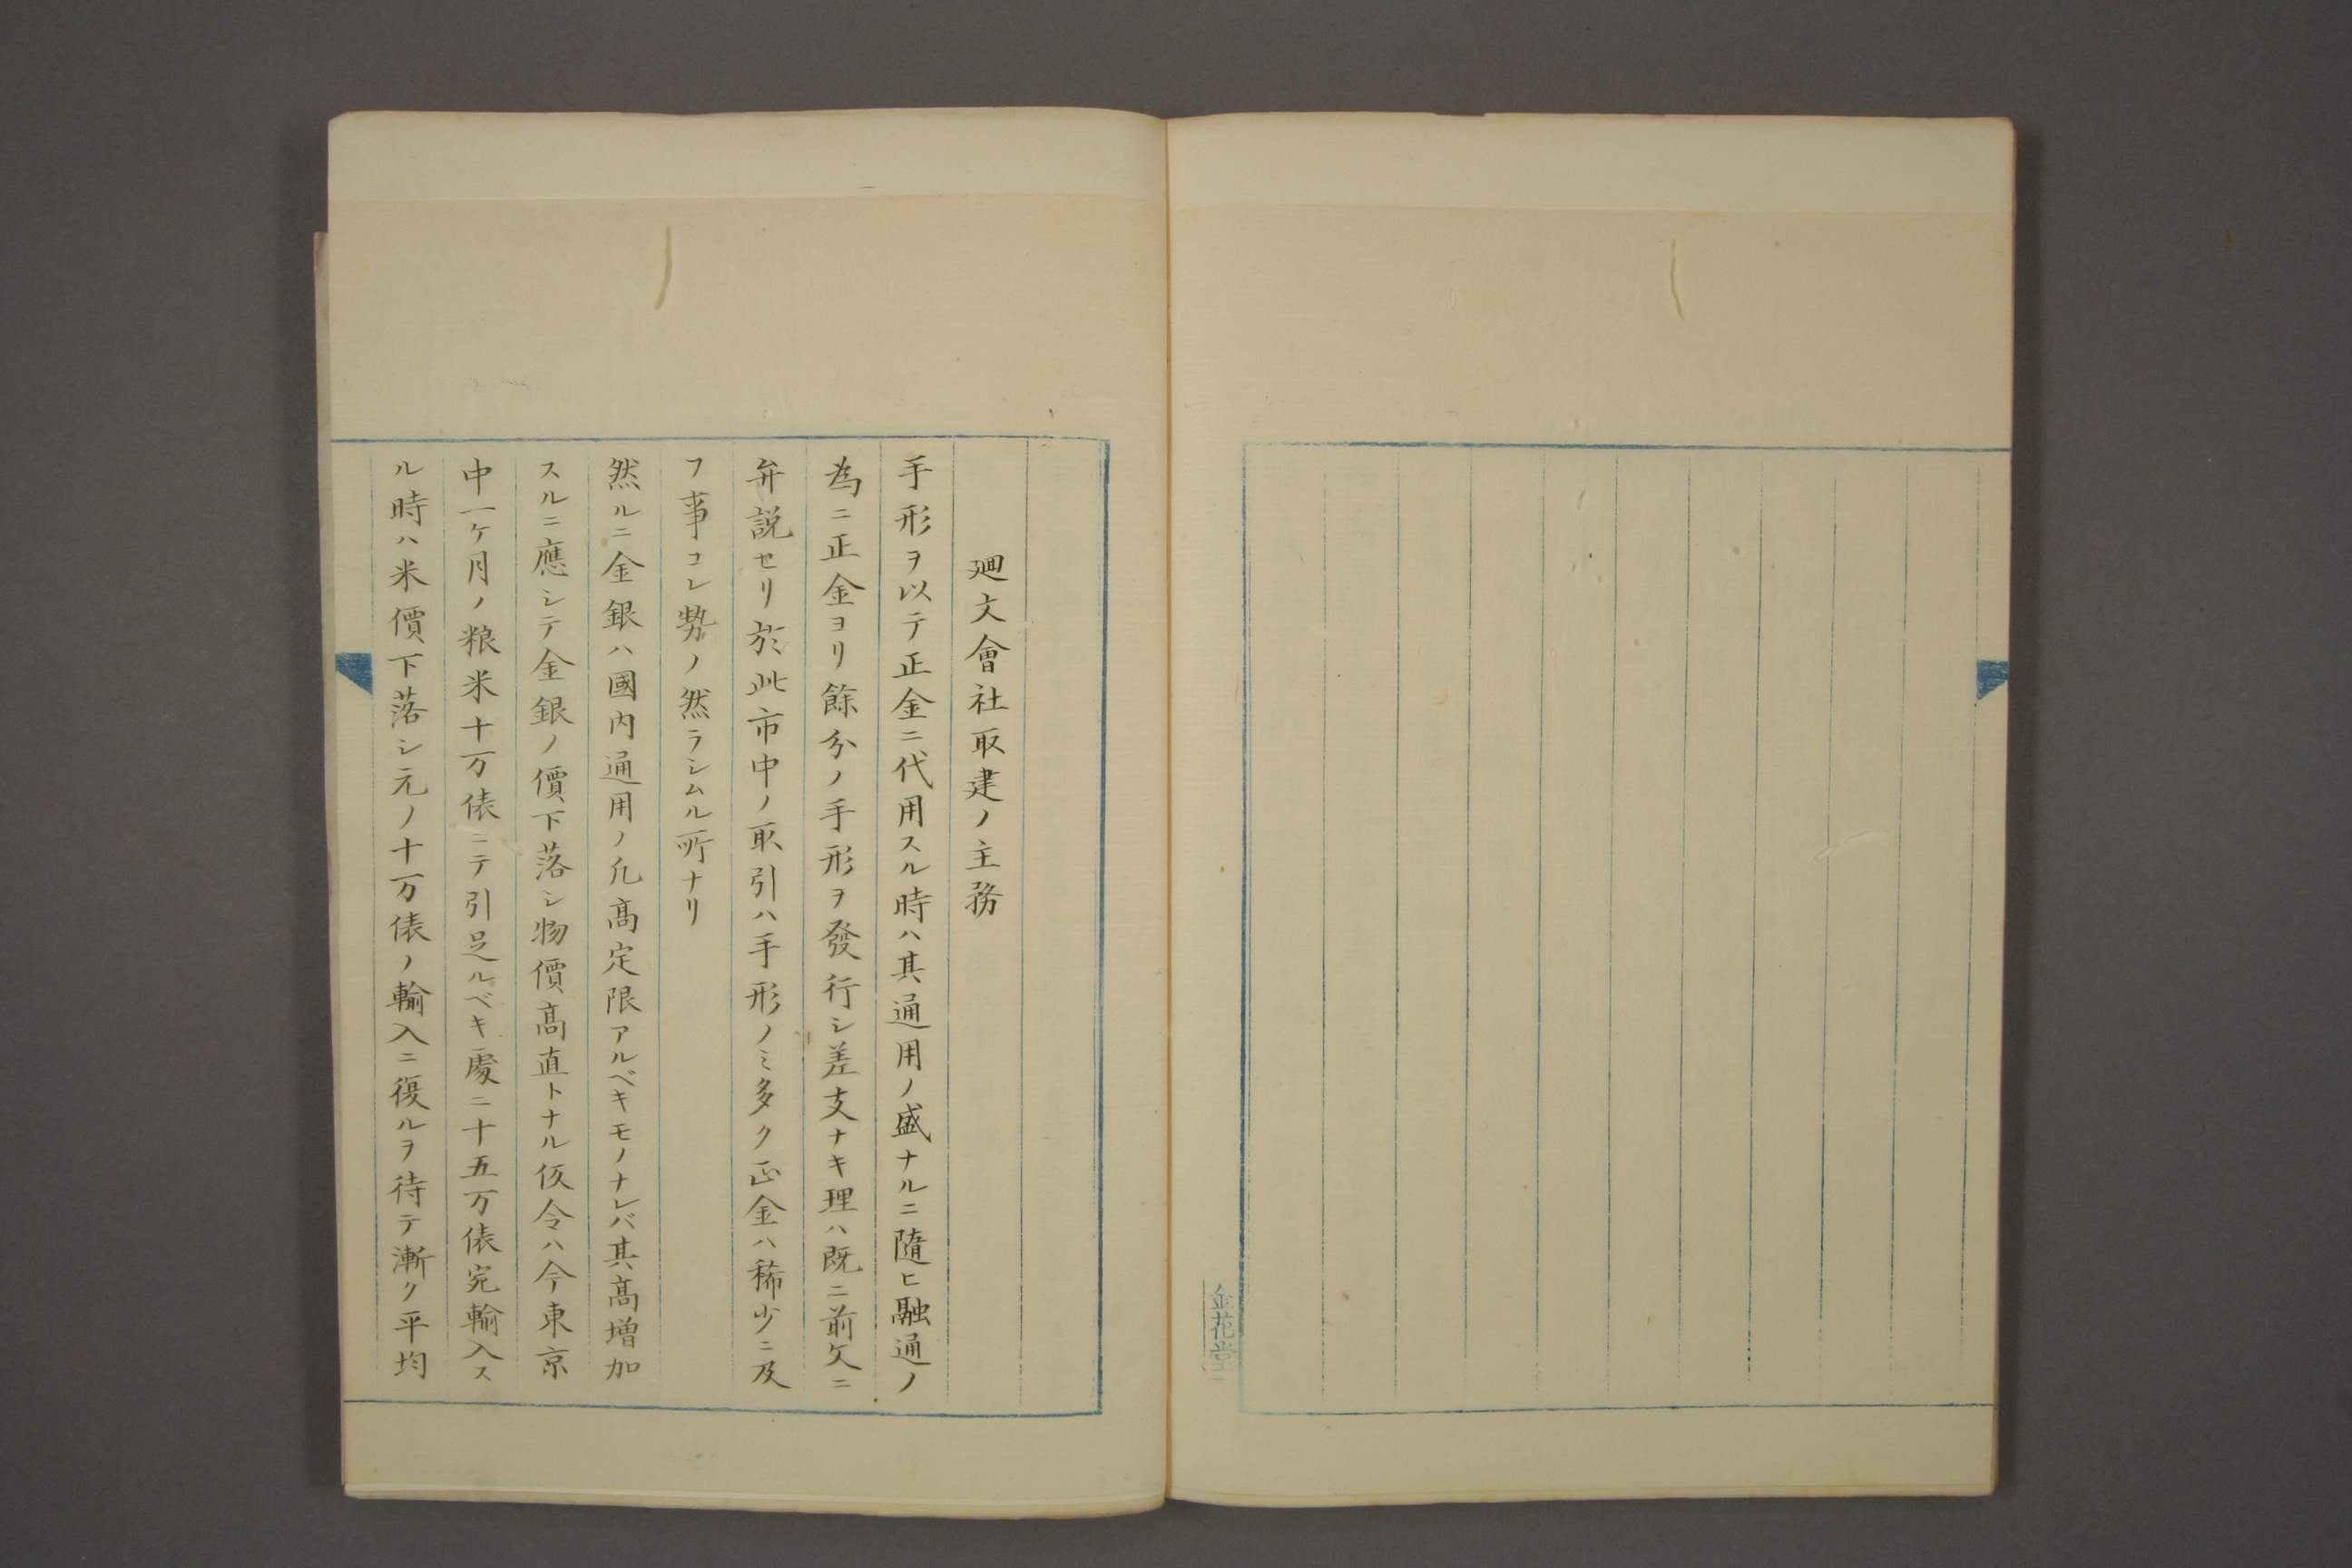 金花堂
廻文會社取建ノ主務
手形ヲ以テ正金ニ代用スル時ハ其通用ノ盛ナルニ隨ヒ融通ノ
為ニ正金ヨリ餘分ノ手形ヲ發行シ差支ナキ理ハ既ニ前文ニ
弁説セリ於此市中ノ取引ハ手形ノミ多ク正金ハ稀少ニ及
フ事コレ勢ノ然ラシムル所ナリ
然ルニ金銀ハ國内通用ノ凢髙定限アルベキモノナレバ其髙増加
スルニ應シテ金銀ノ價下落シ物價髙直トナル仮令ハ今東京
中一ケ月ノ粮米十万俵ニテ引足ルベキ處ニ十五万俵宛輸入ス
ル時ハ米價下落シ元ノ十万俵ノ輸入ニ復ルヲ待テ漸ク平均